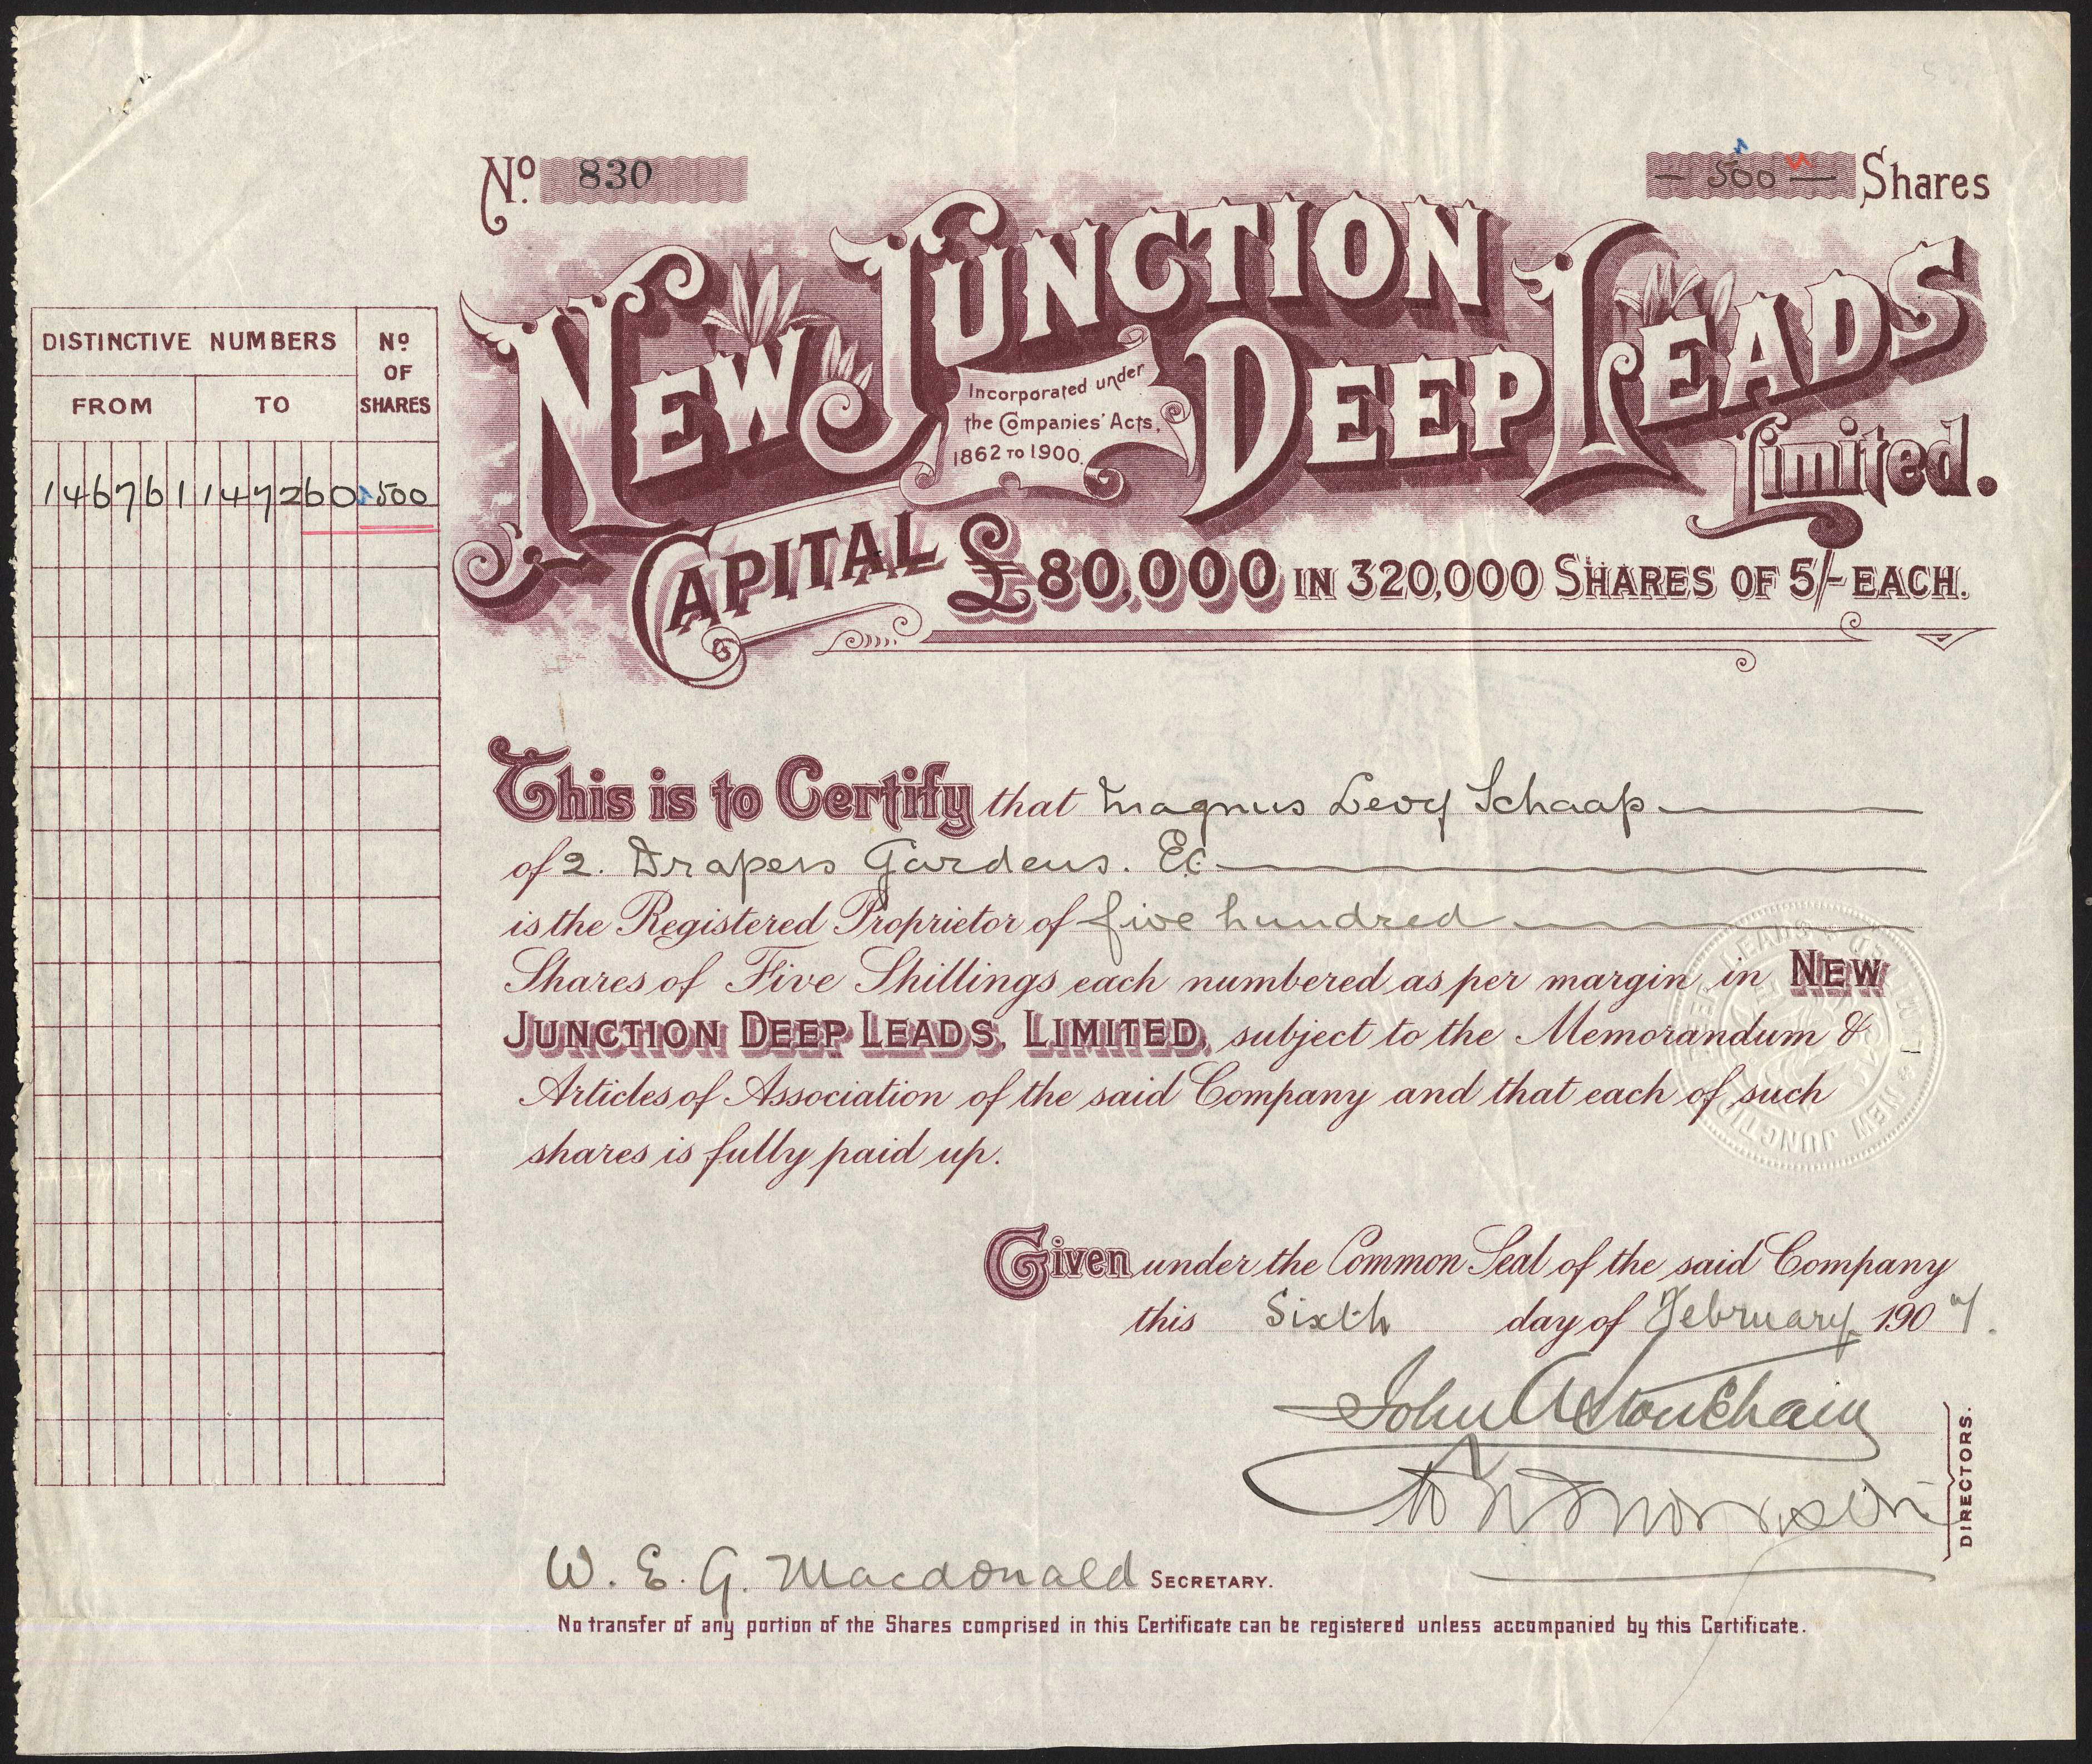 No. 830
— 500 — Shares
NEW JUNCTION DEEP LEADS
Limited.
Incorporated under
the Companies' Acts,
1862 TO 1900.
CAPITAL £80,000 IN 320,000 SHARES OF 5/- EACH.
DISTINCTIVE NUMBERS
No OF SHARES
FROM TO
146761 147260 500
This is to Certify that Magnus Levy Schaap
of 2. Drapers Gardens. E.C
is the Registered Proprietor of five hundred
Shares of Five Shillings each numbered as per margin in NEW
JUNCTION DEEP LEADS, LIMITED, subject to the Memorandum &
Articles of Association of the said Company and that each of such
shares is fully paid up.
NEW JUNCTION DEEP LEADS LIMITED
Given under the Common Seal of the said Company
this Sixth day of February 1907.
John A
Morrison
DIRECTORS.
W. E. G. Macdonald SECRETARY.
No transfer of any portion of the Shares comprised in this Certificate can be registered unless accompanied by this Certificate.